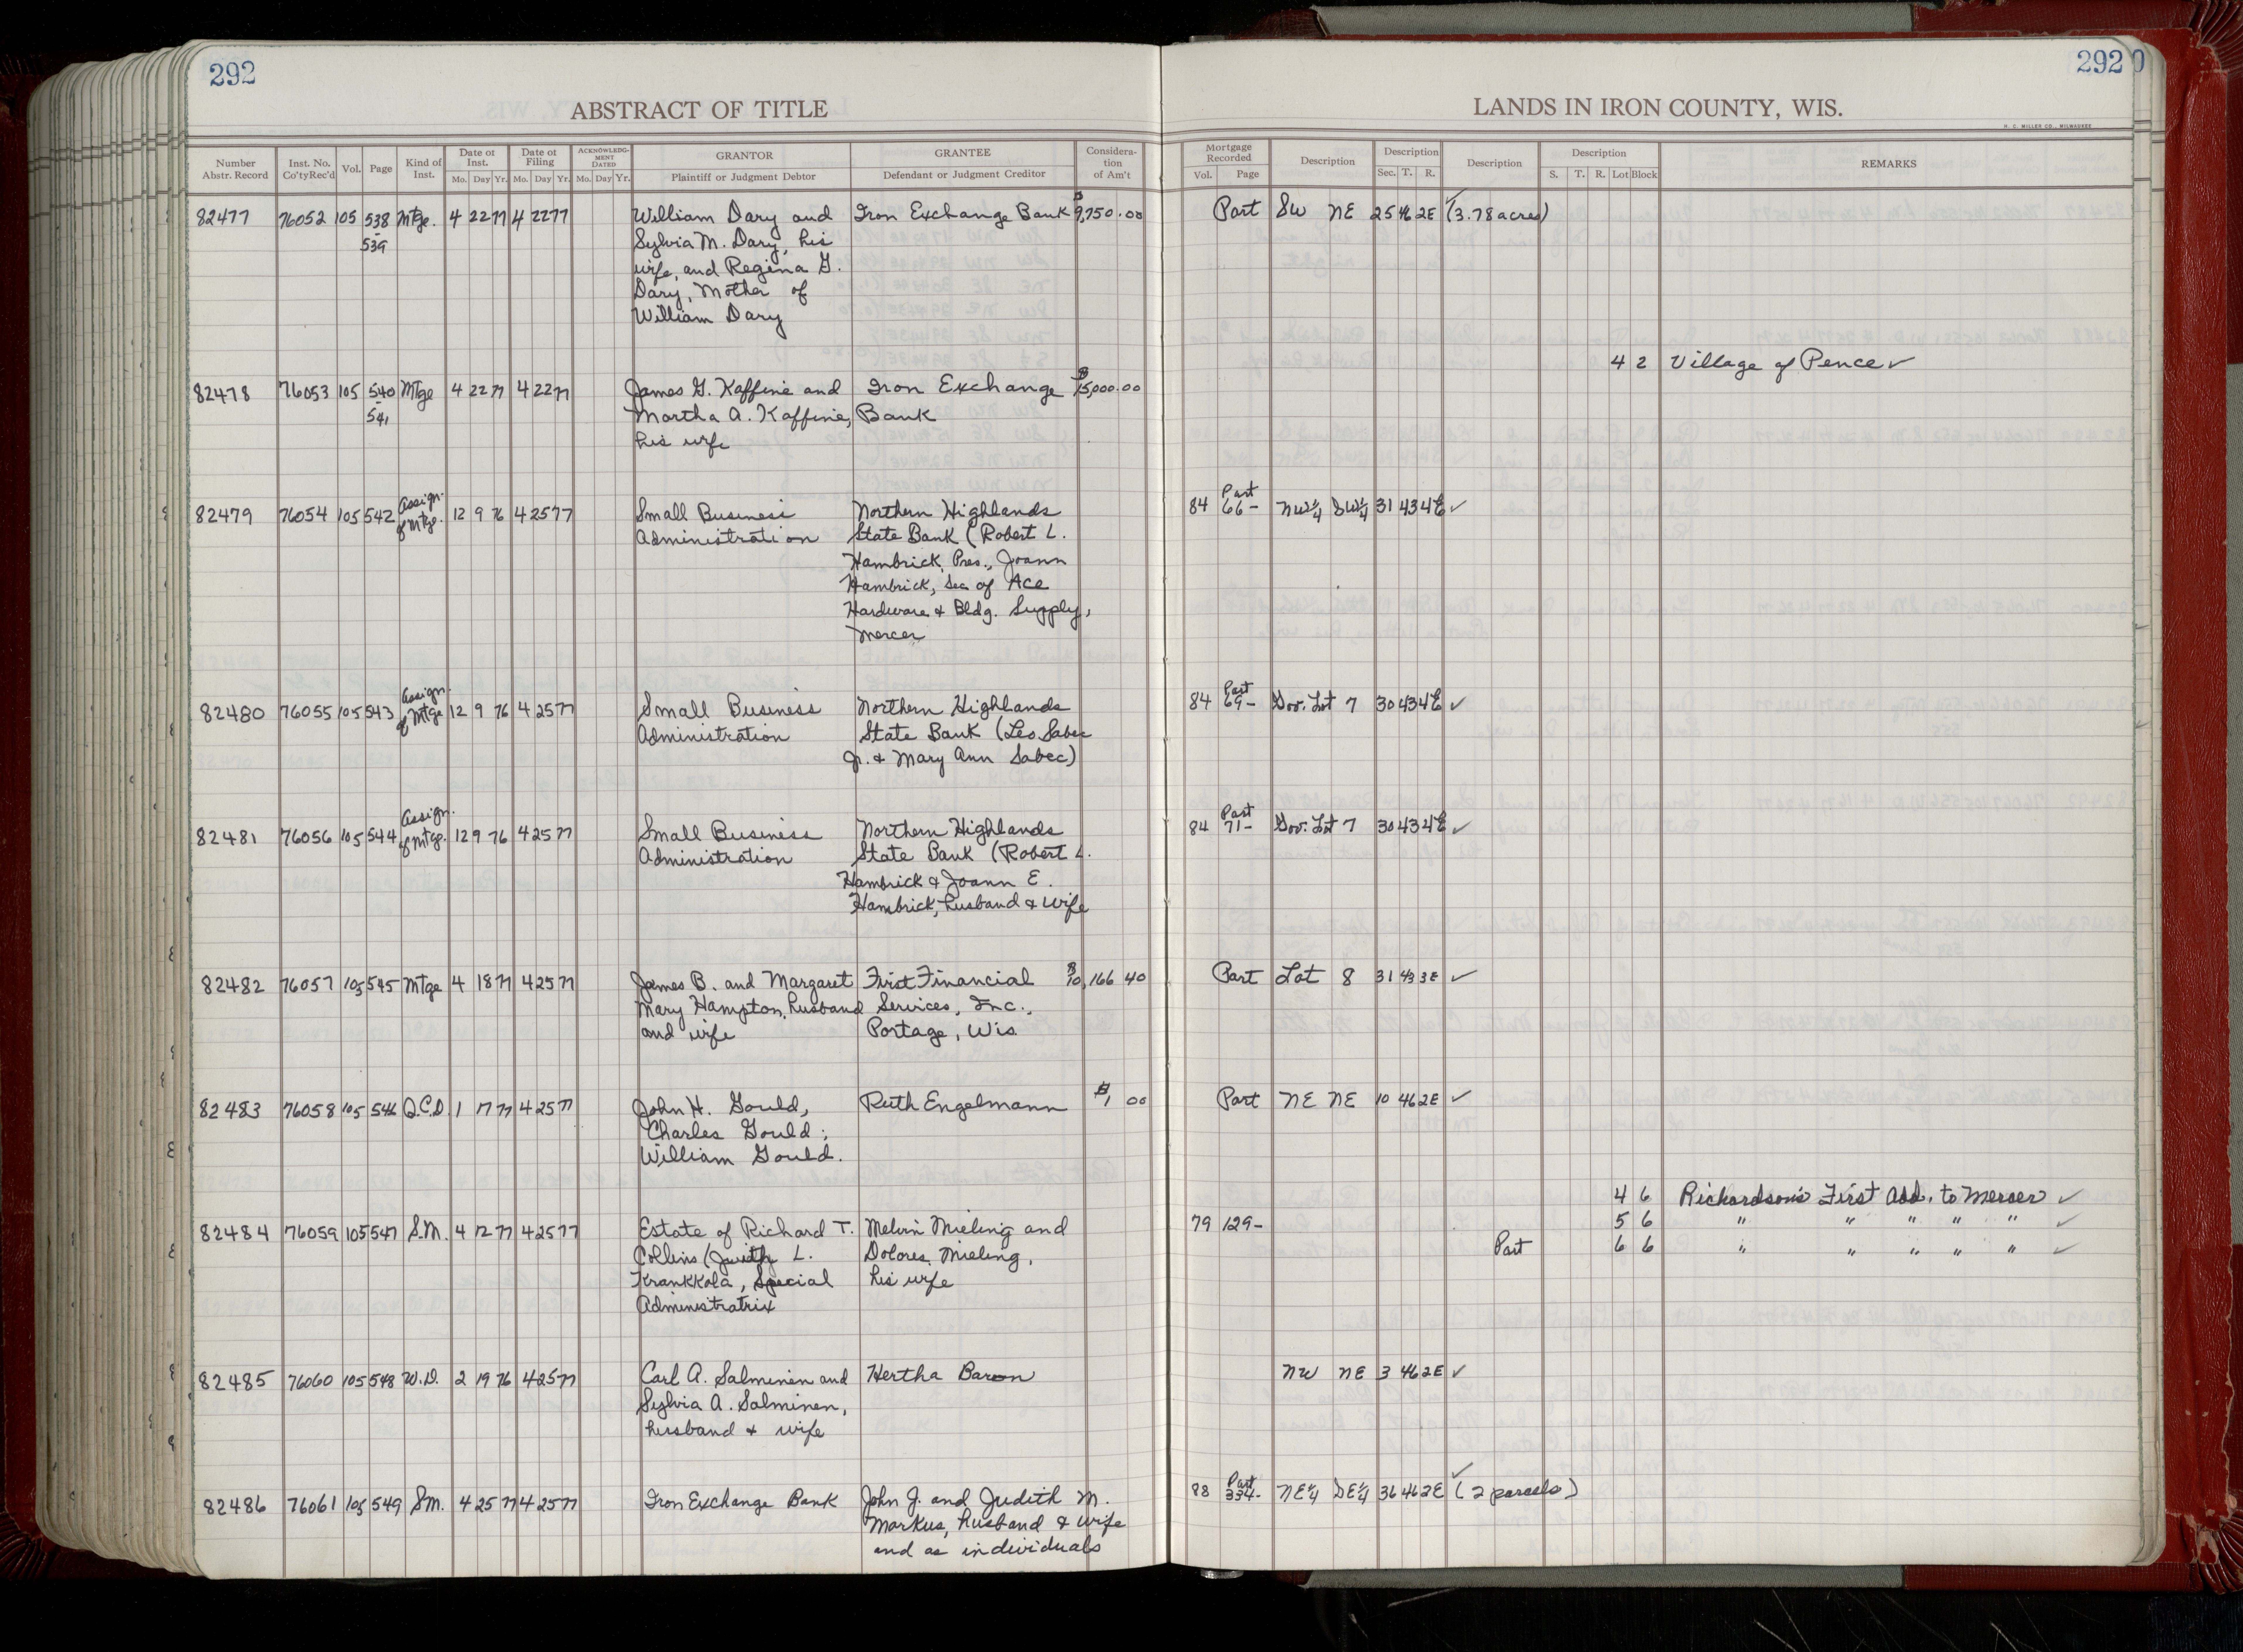 292
292
0
ABSTRACT OF TITLE
LANDS IN IRON COUNTY, WIS.
H. C. MILLER CO., MILWAUKEE
Number Abstr. Record | Inst. No. Co'ty Rec'd | Vol. | Page | Kind of Inst. | Date of Inst. Mo. Day Yr. | Date of Filing Mo. Day Yr. | ACKNOWLEDGMENT DATED Mo. Day Yr. | GRANTOR Plaintiff or Judgment Debtor | GRANTEE Defendant or Judgment Creditor | Consideration of Am't | Mortgage Recorded Vol. Page | Description | Description Sec. T. R. | Description | Description S. T. R. Lot Block | REMARKS
82477 76052 105 538 Mtge. 4 22 77 4 22 77 William Dary and Iron Exchange Bank $9,750.00 Part SW NE 25 46 2E (3.78 acres) ✓
- 539 Sylvia M. Dary, his
wife, and Regina G.
Dary, Mother of
William Dary
4 2 Village of Pence ✓
82478 76053 105 540 Mtge 4 22 77 4 22 77 James G. Kaffine and Iron Exchange $15,000.00
- 541 Martha A. Kaffine, Bank
his wife
Assign. Part
82479 76054 105 542 of Mtge. 12 9 76 4 25 77 Small Business Northern Highlands 84 66- NW¼ SW¼ 31 43 4E ✓
Administration State Bank (Robert L.
Hambrick, Pres., Joann
Hambrick, Sec of Ace
Hardware & Bldg. Supply,
Mercer
Assign. Part
82480 76055 105 543 of Mtge 12 9 76 4 25 77 Small Business Northern Highlands 84 69- Gov. Lot 7 30 43 4E ✓
Administration State Bank (Leo Sabec
Jr. & Mary Ann Sabec)
Assign. Part
82481 76056 105 544 of Mtge. 12 9 76 4 25 77 Small Business Northern Highlands 84 71- Gov. Lot 7 30 43 4E ✓
Administration State Bank (Robert L.
Hambrick & Joann E.
Hambrick, husband & wife
82482 76057 105 545 Mtge 4 18 77 4 25 77 James B. and Margaret First Financial $10,166 40 Part Lot 8 31 43 3E ✓
Mary Hampton, husband Services, Inc.,
and wife Portage, Wis
82483 76058 105 546 Q.C.D. 1 17 77 4 25 77 John H. Gould, Ruth Engelmann $1 00 Part NE NE 10 46 2E ✓
Charles Gould;
William Gould.
4 6 Richardson's First Add. to Mercer ✓
82484 76059 105 547 S.M. 4 12 77 4 25 77 Estate of Richard T. Melvin Mieling and 79 129- 5 6 " " " " " ✓
Collins (Judith L. Dolores Mieling, Part 6 6 " " " " " ✓
Krankkola, Special his wife
Administratrix
82485 76060 105 548 W.D. 2 19 76 4 25 77 Carl A. Salminen and Hertha Baron NW NE 3 46 2E ✓
Sylvia A. Salminen,
husband & wife
Part ✓
82486 76061 105 549 S.M. 4 25 77 4 25 77 Iron Exchange Bank John J. and Judith M. 88 334- NE¼ SE¼ 36 46 2E (2 parcels)
Markus, husband & wife
and as individuals